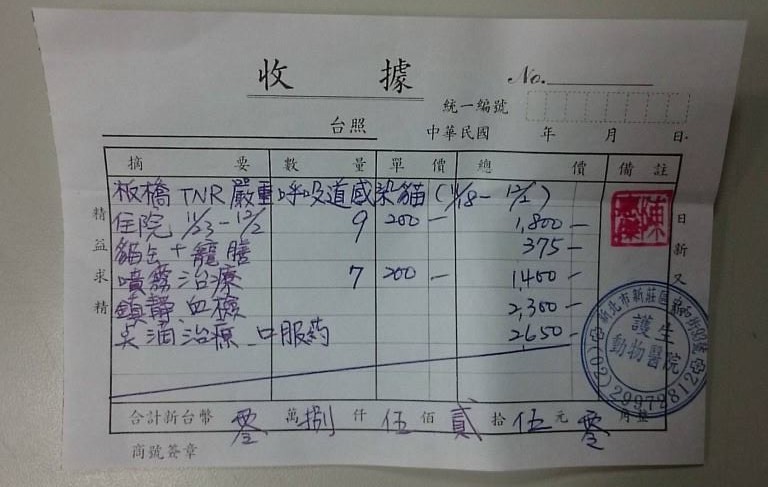 收據
No.
統一編號
台照
中華民國 年 月 日
摘要 數量 單價 總價 備註
板橋 TNR 嚴重呼吸道感染貓 (11/18 - 12/2)
住院 11/23 - 12/2 9 200 — 1,800 —
籠膳 375 —
噴霧治療 7 200 — 1,400 —
鎮靜、血檢 2,300 —
治療、口服藥 2650 —
精益求精
日新又
陳
新北市新莊區
護生
動物醫院
(02)29972812
合計新台幣 零 萬 捌 仟 伍 佰 貳 拾 伍 元 零
商號簽章